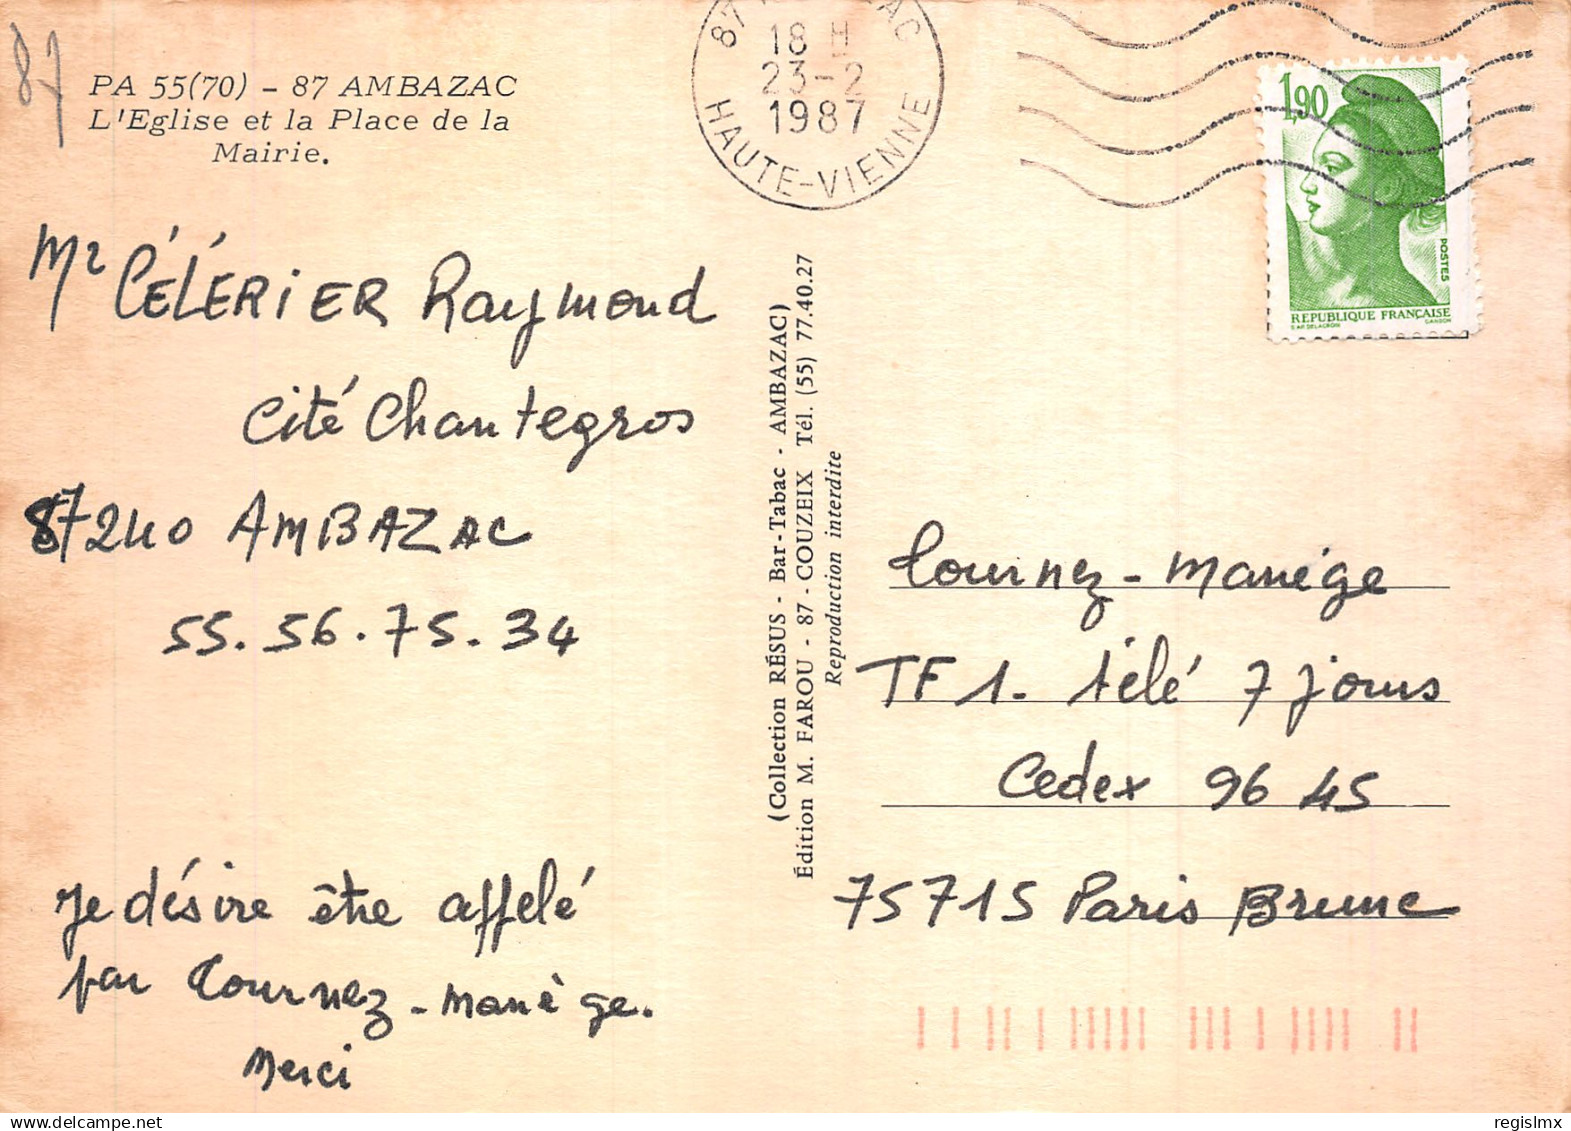 87
PA 55(70) - 87 AMBAZAC
L'Eglise et la Place de la
Mairie.
18 H
23-2
1987
HAUTE-VIENNE
1,90
POSTES
REPUBLIQUE FRANÇAISE
D'AP. DELACROIX GANDON
Mr CÉLÉRIER Raymond
Cité Chantegros
87240 AMBAZAC
55.56.75.34
Je désire être appelé
par Tournez-manège.
Merci
(Collection RÉSUS - Bar-Tabac - AMBAZAC)
Édition M. FAROU - 87 - COUZEIX Tél. (55) 77.40.27
Reproduction interdite
Tournez-Manège
TF1- télé 7 jours
Cedex 96 45
75715 Paris Brune
regislmx